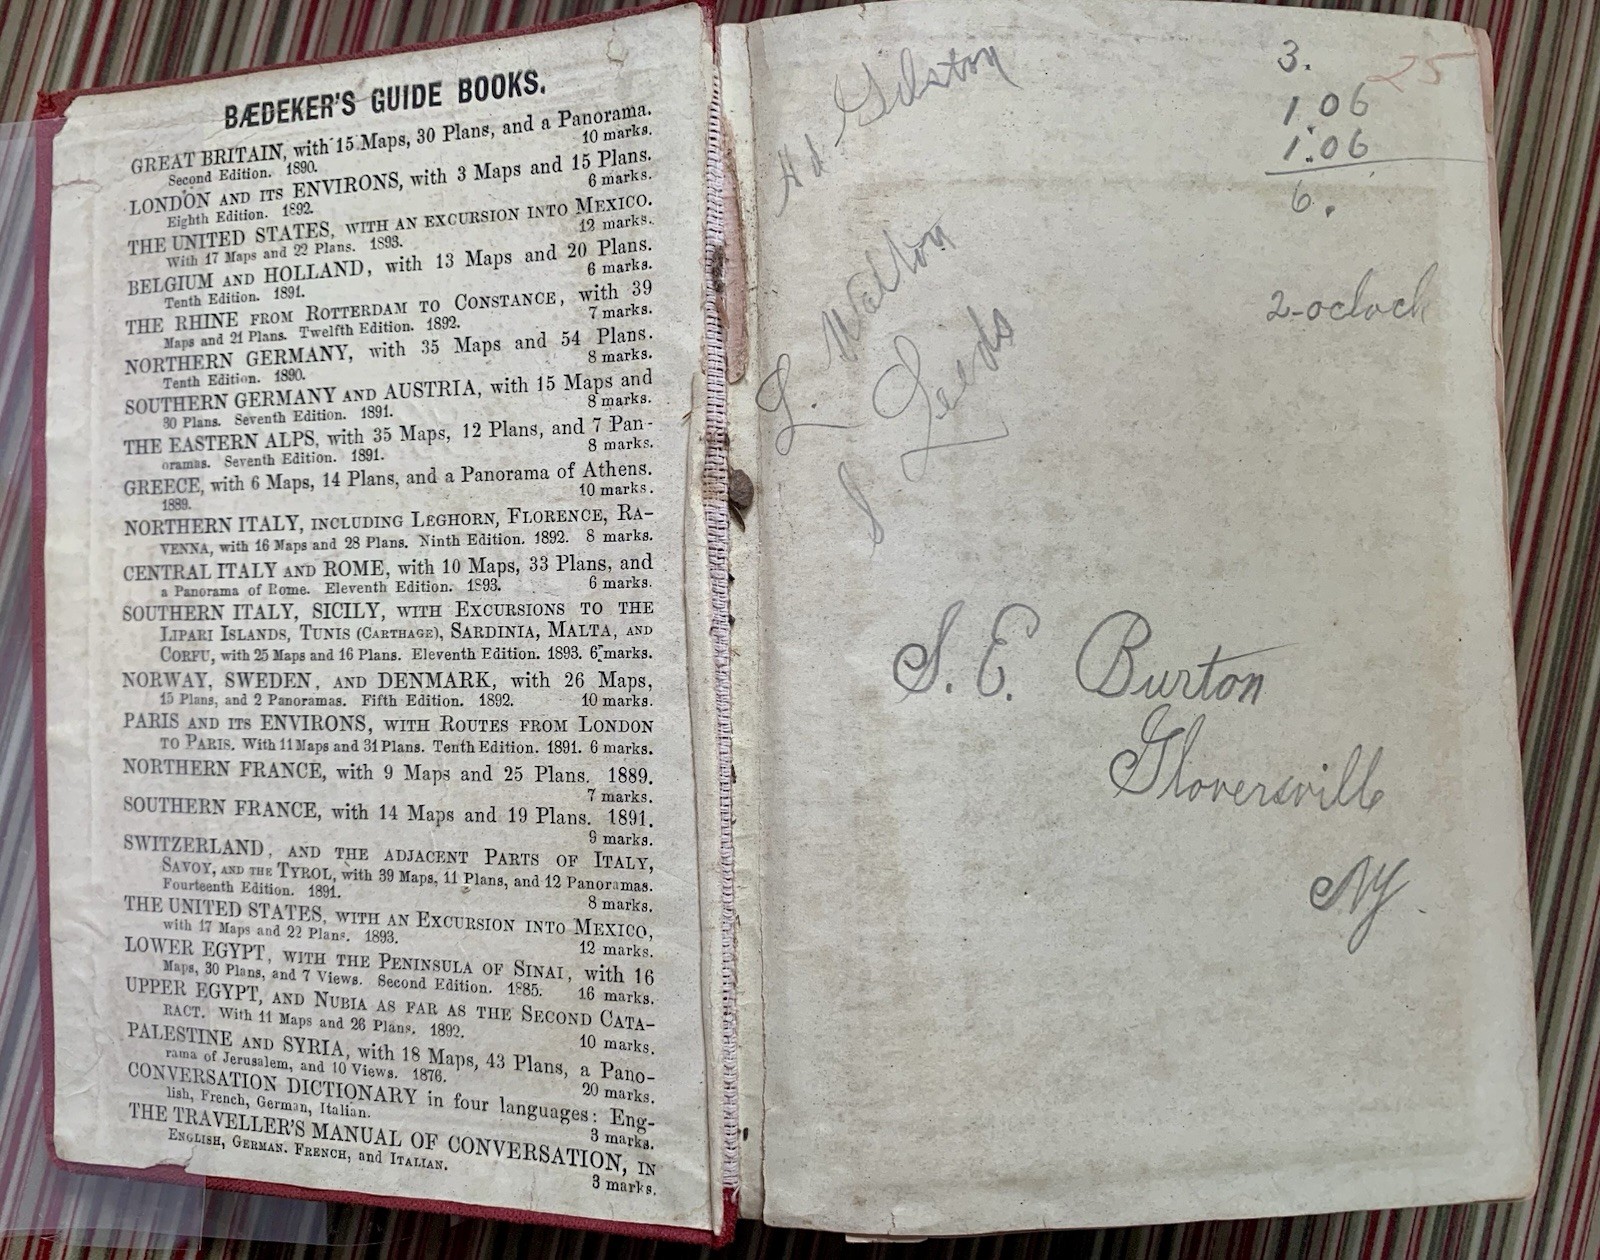 BÆDEKER'S GUIDE BOOKS.
GREAT BRITAIN, with 15 Maps, 30 Plans, and a Panorama.
Second Edition. 1890. 10 marks.
LONDON AND ITS ENVIRONS, with 3 Maps and 15 Plans.
Eighth Edition. 1892. 6 marks.
THE UNITED STATES, WITH AN EXCURSION INTO MEXICO.
With 17 Maps and 22 Plans. 1893. 12 marks.
BELGIUM AND HOLLAND, with 13 Maps and 20 Plans.
Tenth Edition. 1891. 6 marks.
THE RHINE FROM ROTTERDAM TO CONSTANCE, with 39
Maps and 21 Plans. Twelfth Edition. 1892. 7 marks.
NORTHERN GERMANY, with 35 Maps and 54 Plans.
Tenth Edition. 1890. 8 marks.
SOUTHERN GERMANY AND AUSTRIA, with 15 Maps and
30 Plans. Seventh Edition. 1891. 8 marks.
THE EASTERN ALPS, with 35 Maps, 12 Plans, and 7 Pan-
oramas. Seventh Edition. 1891. 8 marks.
GREECE, with 6 Maps, 14 Plans, and a Panorama of Athens.
1889. 10 marks.
NORTHERN ITALY, INCLUDING LEGHORN, FLORENCE, RA-
VENNA, with 16 Maps and 28 Plans. Ninth Edition. 1892. 8 marks.
CENTRAL ITALY AND ROME, with 10 Maps, 33 Plans, and
a Panorama of Rome. Eleventh Edition. 1893. 6 marks.
SOUTHERN ITALY, SICILY, WITH EXCURSIONS TO THE
LIPARI ISLANDS, TUNIS (CARTHAGE), SARDINIA, MALTA, AND
CORFU, with 25 Maps and 16 Plans. Eleventh Edition. 1893. 6 marks.
NORWAY, SWEDEN, AND DENMARK, with 26 Maps,
15 Plans, and 2 Panoramas. Fifth Edition. 1892. 10 marks.
PARIS AND ITS ENVIRONS, WITH ROUTES FROM LONDON
TO PARIS. With 11 Maps and 31 Plans. Tenth Edition. 1891. 6 marks.
NORTHERN FRANCE, with 9 Maps and 25 Plans. 1889.
7 marks.
SOUTHERN FRANCE, with 14 Maps and 19 Plans. 1891.
9 marks.
SWITZERLAND, AND THE ADJACENT PARTS OF ITALY,
SAVOY, AND THE TYROL, with 39 Maps, 11 Plans, and 12 Panoramas.
Fourteenth Edition. 1891. 8 marks.
THE UNITED STATES, WITH AN EXCURSION INTO MEXICO,
with 17 Maps and 22 Plans. 1893. 12 marks.
LOWER EGYPT, WITH THE PENINSULA OF SINAI, with 16
Maps, 30 Plans, and 7 Views. Second Edition. 1885. 16 marks.
UPPER EGYPT, AND NUBIA AS FAR AS THE SECOND CATA-
RACT. With 11 Maps and 26 Plans. 1892. 10 marks.
PALESTINE AND SYRIA, with 18 Maps, 43 Plans, a Pano-
rama of Jerusalem, and 10 Views. 1876. 20 marks.
CONVERSATION DICTIONARY in four languages: Eng-
lish, French, German, Italian. 3 marks.
THE TRAVELLER'S MANUAL OF CONVERSATION, IN
ENGLISH, GERMAN. FRENCH, and ITALIAN.
3 marks.
3.
25
1.06
1.06
6.
2-oclock
L. Walton
Leeds
S
S. E. Burton
Gloversville
NY.